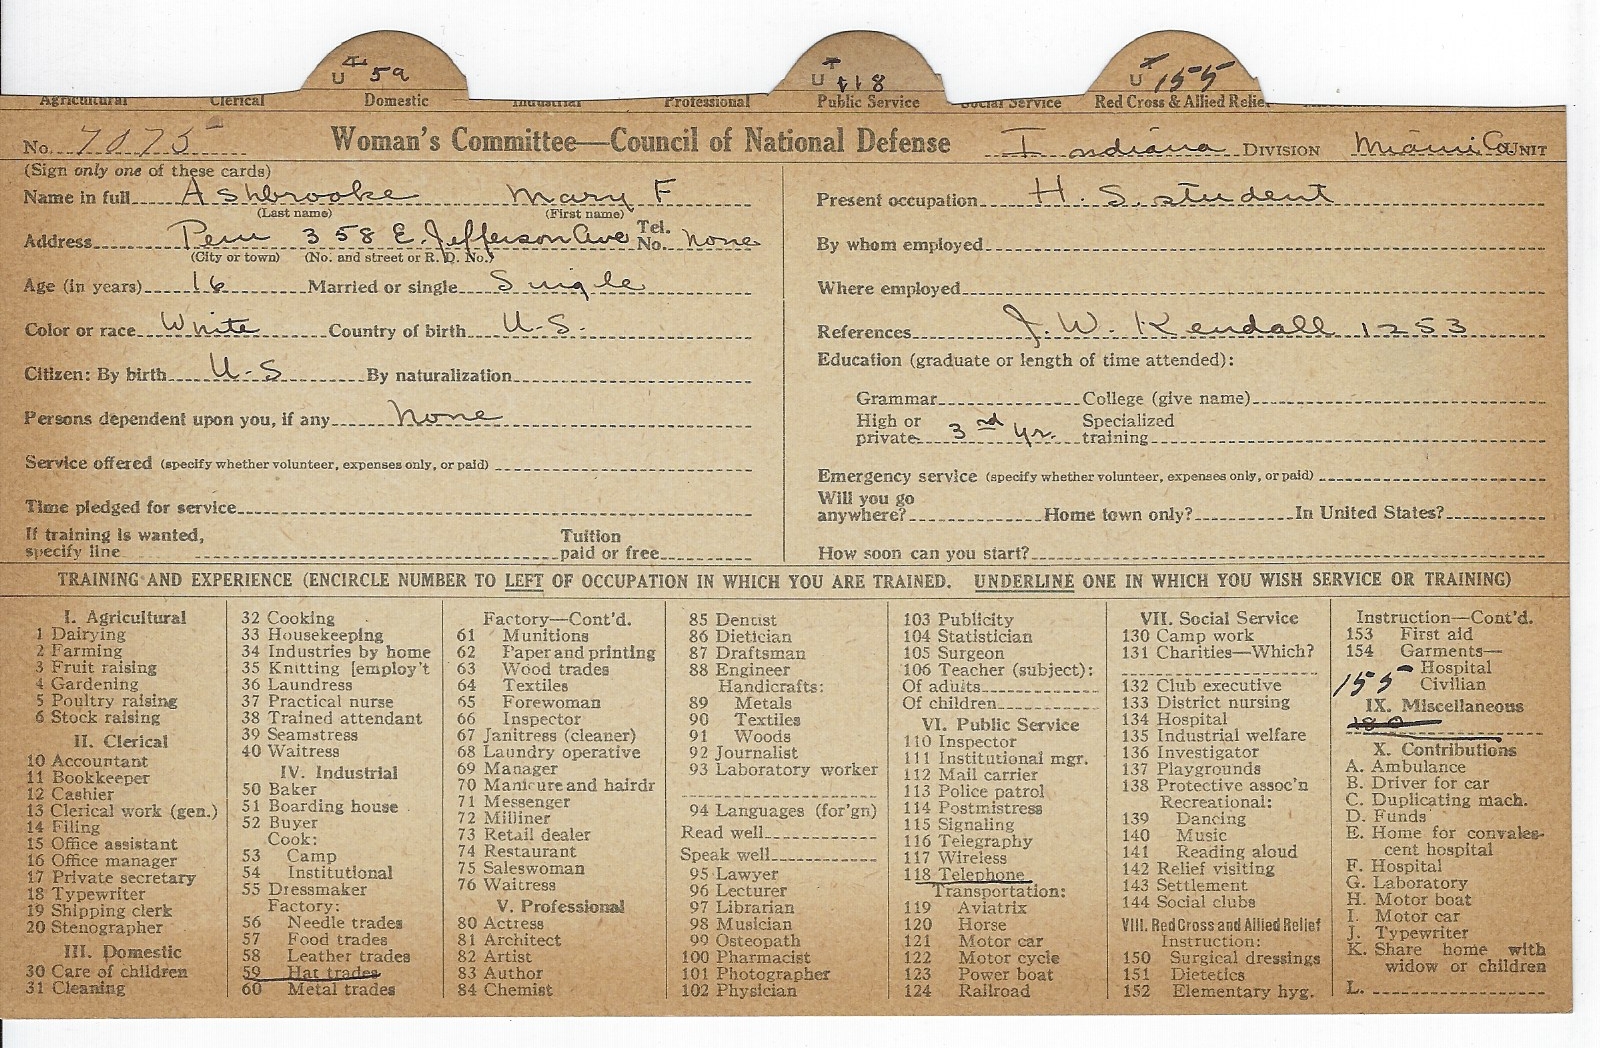 U 59
U 118
U 155
Agricultural Clerical Domestic Industrial Professional Public Service Social Service Red Cross & Allied Relief
No. 7075 Woman's Committee—Council of National Defense Indiana DIVISION Miami Co. UNIT
(Sign only one of these cards)
Name in full Ashbrooke Mary F
(Last name) (First name)
Address Peru 358 E. Jefferson Ave Tel. No. none
(City or town) (No. and street or R. D. No.)
Age (in years) 16 Married or single Single
Color or race White Country of birth U.S.
Citizen: By birth U-S By naturalization
Persons dependent upon you, if any none
Service offered (specify whether volunteer, expenses only, or paid)
Time pledged for service
If training is wanted,
specify line
Tuition
paid or free
Present occupation H. S. student
By whom employed
Where employed
References J. W. Kendall 1253
Education (graduate or length of time attended):
Grammar College (give name)
High or
private 3rd yr.
Specialized
training
Emergency service (specify whether volunteer, expenses only, or paid)
Will you go
anywhere? Home town only? In United States?
How soon can you start?
TRAINING AND EXPERIENCE (ENCIRCLE NUMBER TO LEFT OF OCCUPATION IN WHICH YOU ARE TRAINED. UNDERLINE ONE IN WHICH YOU WISH SERVICE OR TRAINING)
I. Agricultural
1 Dairying
2 Farming
3 Fruit raising
4 Gardening
5 Poultry raising
6 Stock raising
II. Clerical
10 Accountant
11 Bookkeeper
12 Cashier
13 Clerical work (gen.)
14 Filing
15 Office assistant
16 Office manager
17 Private secretary
18 Typewriter
19 Shipping clerk
20 Stenographer
III. Domestic
30 Care of children
31 Cleaning
32 Cooking
33 Housekeeping
34 Industries by home
35 Knitting [employ't
36 Laundress
37 Practical nurse
38 Trained attendant
39 Seamstress
40 Waitress
IV. Industrial
50 Baker
51 Boarding house
52 Buyer
Cook:
53 Camp
54 Institutional
55 Dressmaker
Factory:
56 Needle trades
57 Food trades
58 Leather trades
59 Hat trades
60 Metal trades
Factory—Cont'd.
61 Munitions
62 Paper and printing
63 Wood trades
64 Textiles
65 Forewoman
66 Inspector
67 Janitress (cleaner)
68 Laundry operative
69 Manager
70 Manicure and hairdr
71 Messenger
72 Milliner
73 Retail dealer
74 Restaurant
75 Saleswoman
76 Waitress
V. Professional
80 Actress
81 Architect
82 Artist
83 Author
84 Chemist
85 Dentist
86 Dietician
87 Draftsman
88 Engineer
Handicrafts:
89 Metals
90 Textiles
91 Woods
92 Journalist
93 Laboratory worker
94 Languages (for'gn)
Read well
Speak well
95 Lawyer
96 Lecturer
97 Librarian
98 Musician
99 Osteopath
100 Pharmacist
101 Photographer
102 Physician
103 Publicity
104 Statistician
105 Surgeon
106 Teacher (subject):
Of adults
Of children
VI. Public Service
110 Inspector
111 Institutional mgr.
112 Mail carrier
113 Police patrol
114 Postmistress
115 Signaling
116 Telegraphy
117 Wireless
118 Telephone
Transportation:
119 Aviatrix
120 Horse
121 Motor car
122 Motor cycle
123 Power boat
124 Railroad
VII. Social Service
130 Camp work
131 Charities—Which?
132 Club executive
133 District nursing
134 Hospital
135 Industrial welfare
136 Investigator
137 Playgrounds
138 Protective assoc'n
Recreational:
139 Dancing
140 Music
141 Reading aloud
142 Relief visiting
143 Settlement
144 Social clubs
VIII. Red Cross and Allied Relief
Instruction:
150 Surgical dressings
151 Dietetics
152 Elementary hyg.
Instruction—Cont'd.
153 First aid
154 Garments—
Hospital
155 Civilian
IX. Miscellaneous
180
X. Contributions
A. Ambulance
B. Driver for car
C. Duplicating mach.
D. Funds
E. Home for convales-
cent hospital
F. Hospital
G. Laboratory
H. Motor boat
I. Motor car
J. Typewriter
K. Share home with
widow or children
L.